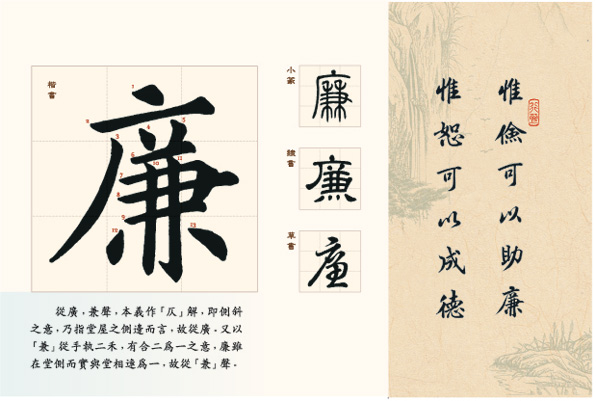 楷書
廉
小篆
廉
隸書
廉
草書
廉
從廣,兼聲,本義作「仄」解,即側斜
之意,乃指堂屋之側邊而言,故從廣.又以
「兼」從手執二禾,有合二爲一之意,廉雖
在堂側而實與堂相連爲一,故從「兼」聲.
行書
惟儉可以助廉
惟恕可以成德